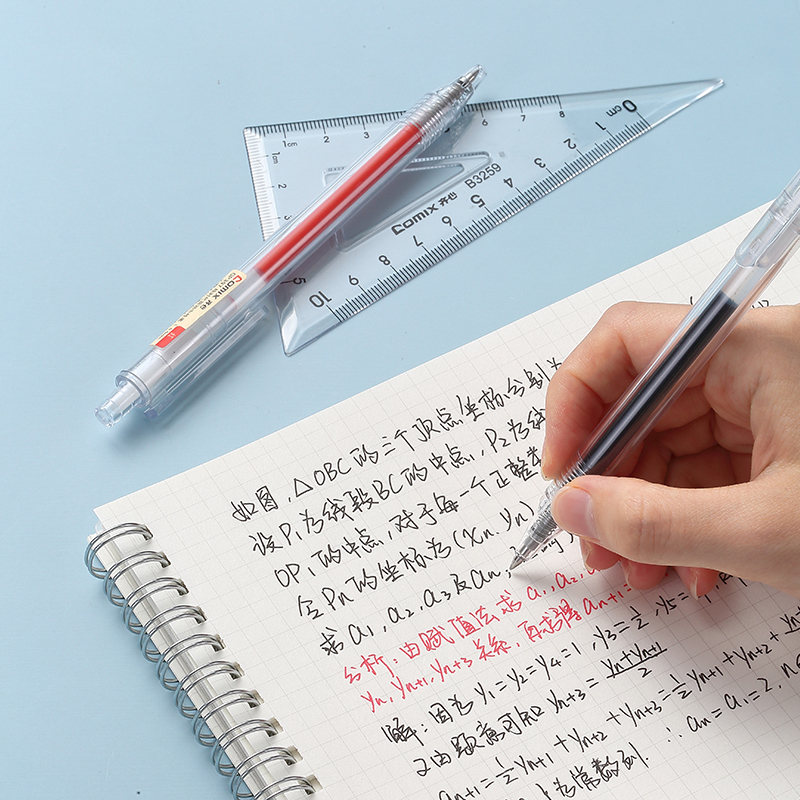 1cm 2 3 6 7 8
1cm
2
5
0 cm 1 2 3 4 5 6 7 8 9 10
Comix 齐心 B3259
Comix 齐心
如图，△OBC的三个顶点坐标分别为
设P1为线段BC的中点，P2为线
OP1的中点，对于每一个正整数
令Pn的坐标为(xn, yn)
求a1, a2, a3及an
分析：由赋值法求a1, a2,
yn, yn+1, yn+3关系，再求得an+1=
解：因为y1=y2=y4=1, y3=1/2, y5=
又由题意可知yn+3=(yn+yn+1)/2
an+1=1/2yn+1+yn+2+yn+3=1/2yn+1+yn+2+
为常数列. ∴an=a1=2, n